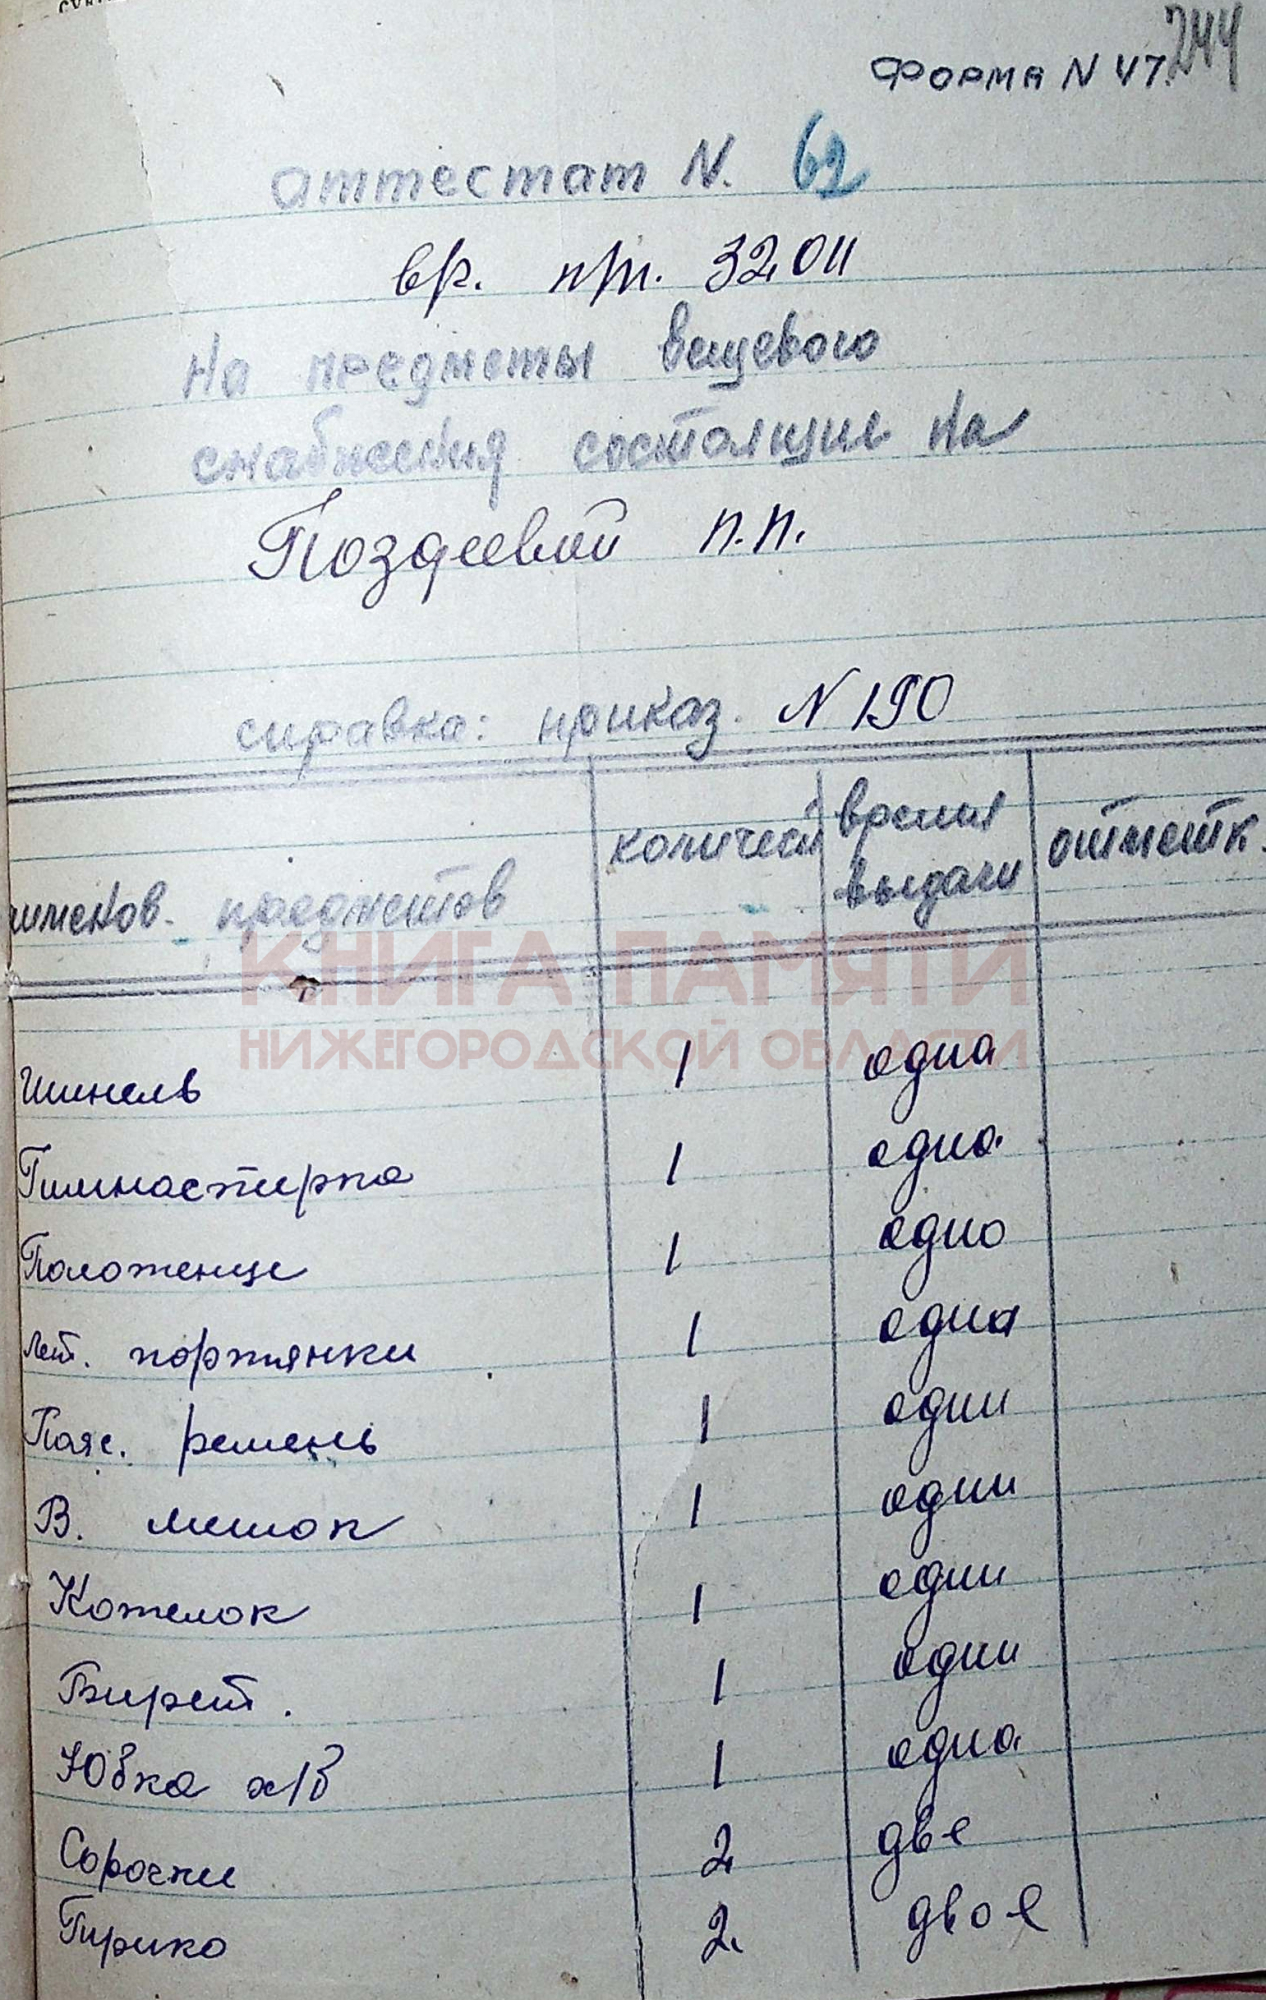 244
ФОРМА N 47.
аттестат N. 62
вр. прт. 32011
На предметы вещевого
снабжения состоящие на
Поздеевой П.П.
справка: приказ. N 190
именов. предметов количест время выдачи отметк.
КНИГА ПАМЯТИ
НИЖЕГОРОДСКОЙ ОБЛАСТИ
Шинель 1 одна
Гимнастирка 1 одна
Полотенце 1 одно
Лет. портянки 1 одна
Пояс. ремень 1 один
В. мешок 1 один
Котелок 1 один
Бирет. 1 один
Юбка х/б 1 одна
Сорочки 2 две
Тирико 2. двое